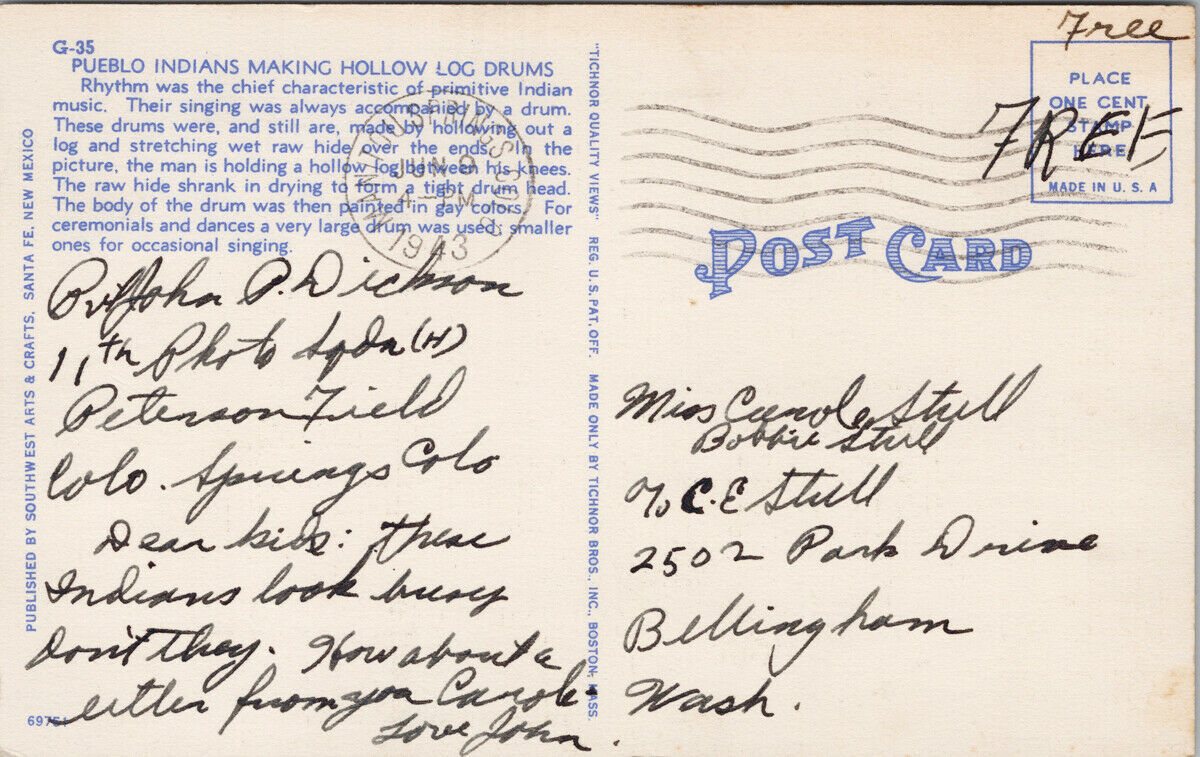 G-35
PUEBLO INDIANS MAKING HOLLOW LOG DRUMS
Rhythm was the chief characteristic of primitive Indian
music. Their singing was always accompanied by a drum.
These drums were, and still are, made by hollowing out a
log and stretching wet raw hide over the ends. In the
picture, the man is holding a hollow log between his knees.
The raw hide shrank in drying to form a tight drum head.
The body of the drum was then painted in gay colors. For
ceremonials and dances a very large drum was used, smaller
ones for occasional singing.
PUBLISHED BY SOUTHWEST ARTS & CRAFTS, SANTA FE, NEW MEXICO
Pvt John P. Dickson
11th Photo Sqdn (H)
Peterson Field
Colo. Springs Colo
Dear kids: these
Indians look busy
don't they. How about a
letter from you Carole
Love John.
6975
"TICHNOR QUALITY VIEWS" REG. U.S. PAT. OFF. MADE ONLY BY TICHNOR BROS., INC., BOSTON, MASS.
JUN 9
PM
1943
Free
PLACE
ONE CENT
STAMP
HERE
MADE IN U. S. A
FREE
POST CARD
Miss Carole Stull
Bobbie Stull
c/o C. E Stull
2502 Park Drive
Bellingham
Wash.